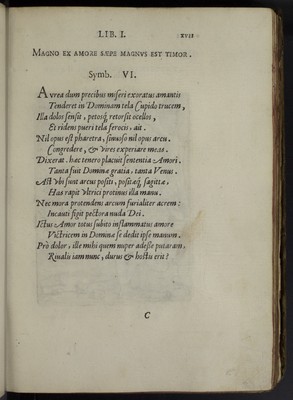 LIB. I. XVII
MAGNO EX AMORE SÆPE MAGNVS EST TIMOR.
Symb. VI.
Aurea dum precibus miseri exoratus amantis
Tenderet in Dominam tela Cupido trucem,
Illa dolos sensit, petosq́; retorsit ocellis,
Et ridens pueri tela ferocis, ait.
Nil opus est pharetra, sinuoso nil opus arcu.
Congredere, & vires experiare meas.
Dixerat. hæc tenero placuit sententia Amori.
Tanta fuit Dominæ gratia, tanta Venus.
Ast vbi sunt arcus positi, positæq́; sagittæ,
Has rapit vltrici protinus illa manu.
Nec mora protendens arcum furialiter acrem:
Incauti figit pectora nuda Dei.
Ictus Amor totus subito inflammatus amore
Victricem in Dominæ se dedit ipse manum.
Prò dolor, ille mihi quem nuper adesse putaram,
Riualis iam nunc, durus & hostis erit?
C